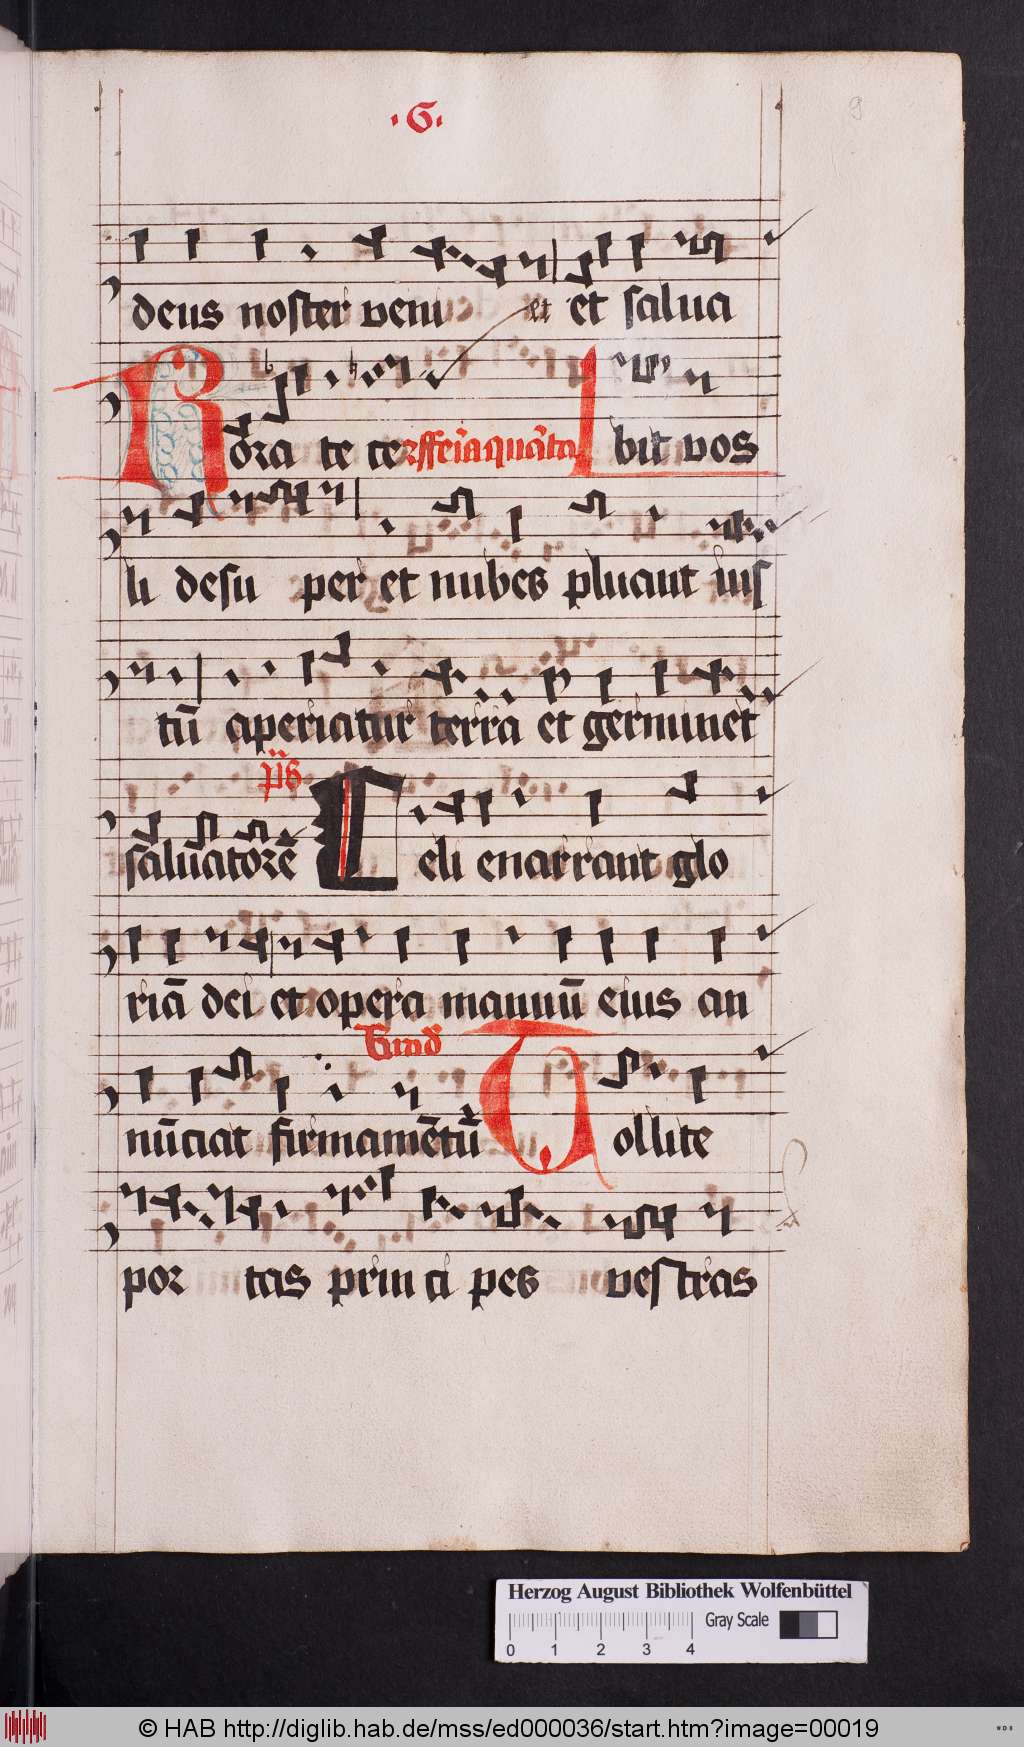 ·6·
9
deus noster veni et et salua
Rora te ce Feria quarta bit vos
li desu per et nubes pluant ius
tū aperiatur terra et germinet
p̄s
saluatorē Celi enarrant glo
riā dei et opera manuū eius an
nūciat firmamētū Tollite
por tas prin ci pes vestras
Herzog August Bibliothek Wolfenbüttel
0 1 2 3 4 Gray Scale
© HAB http://diglib.hab.de/mss/ed000036/start.htm?image=00019